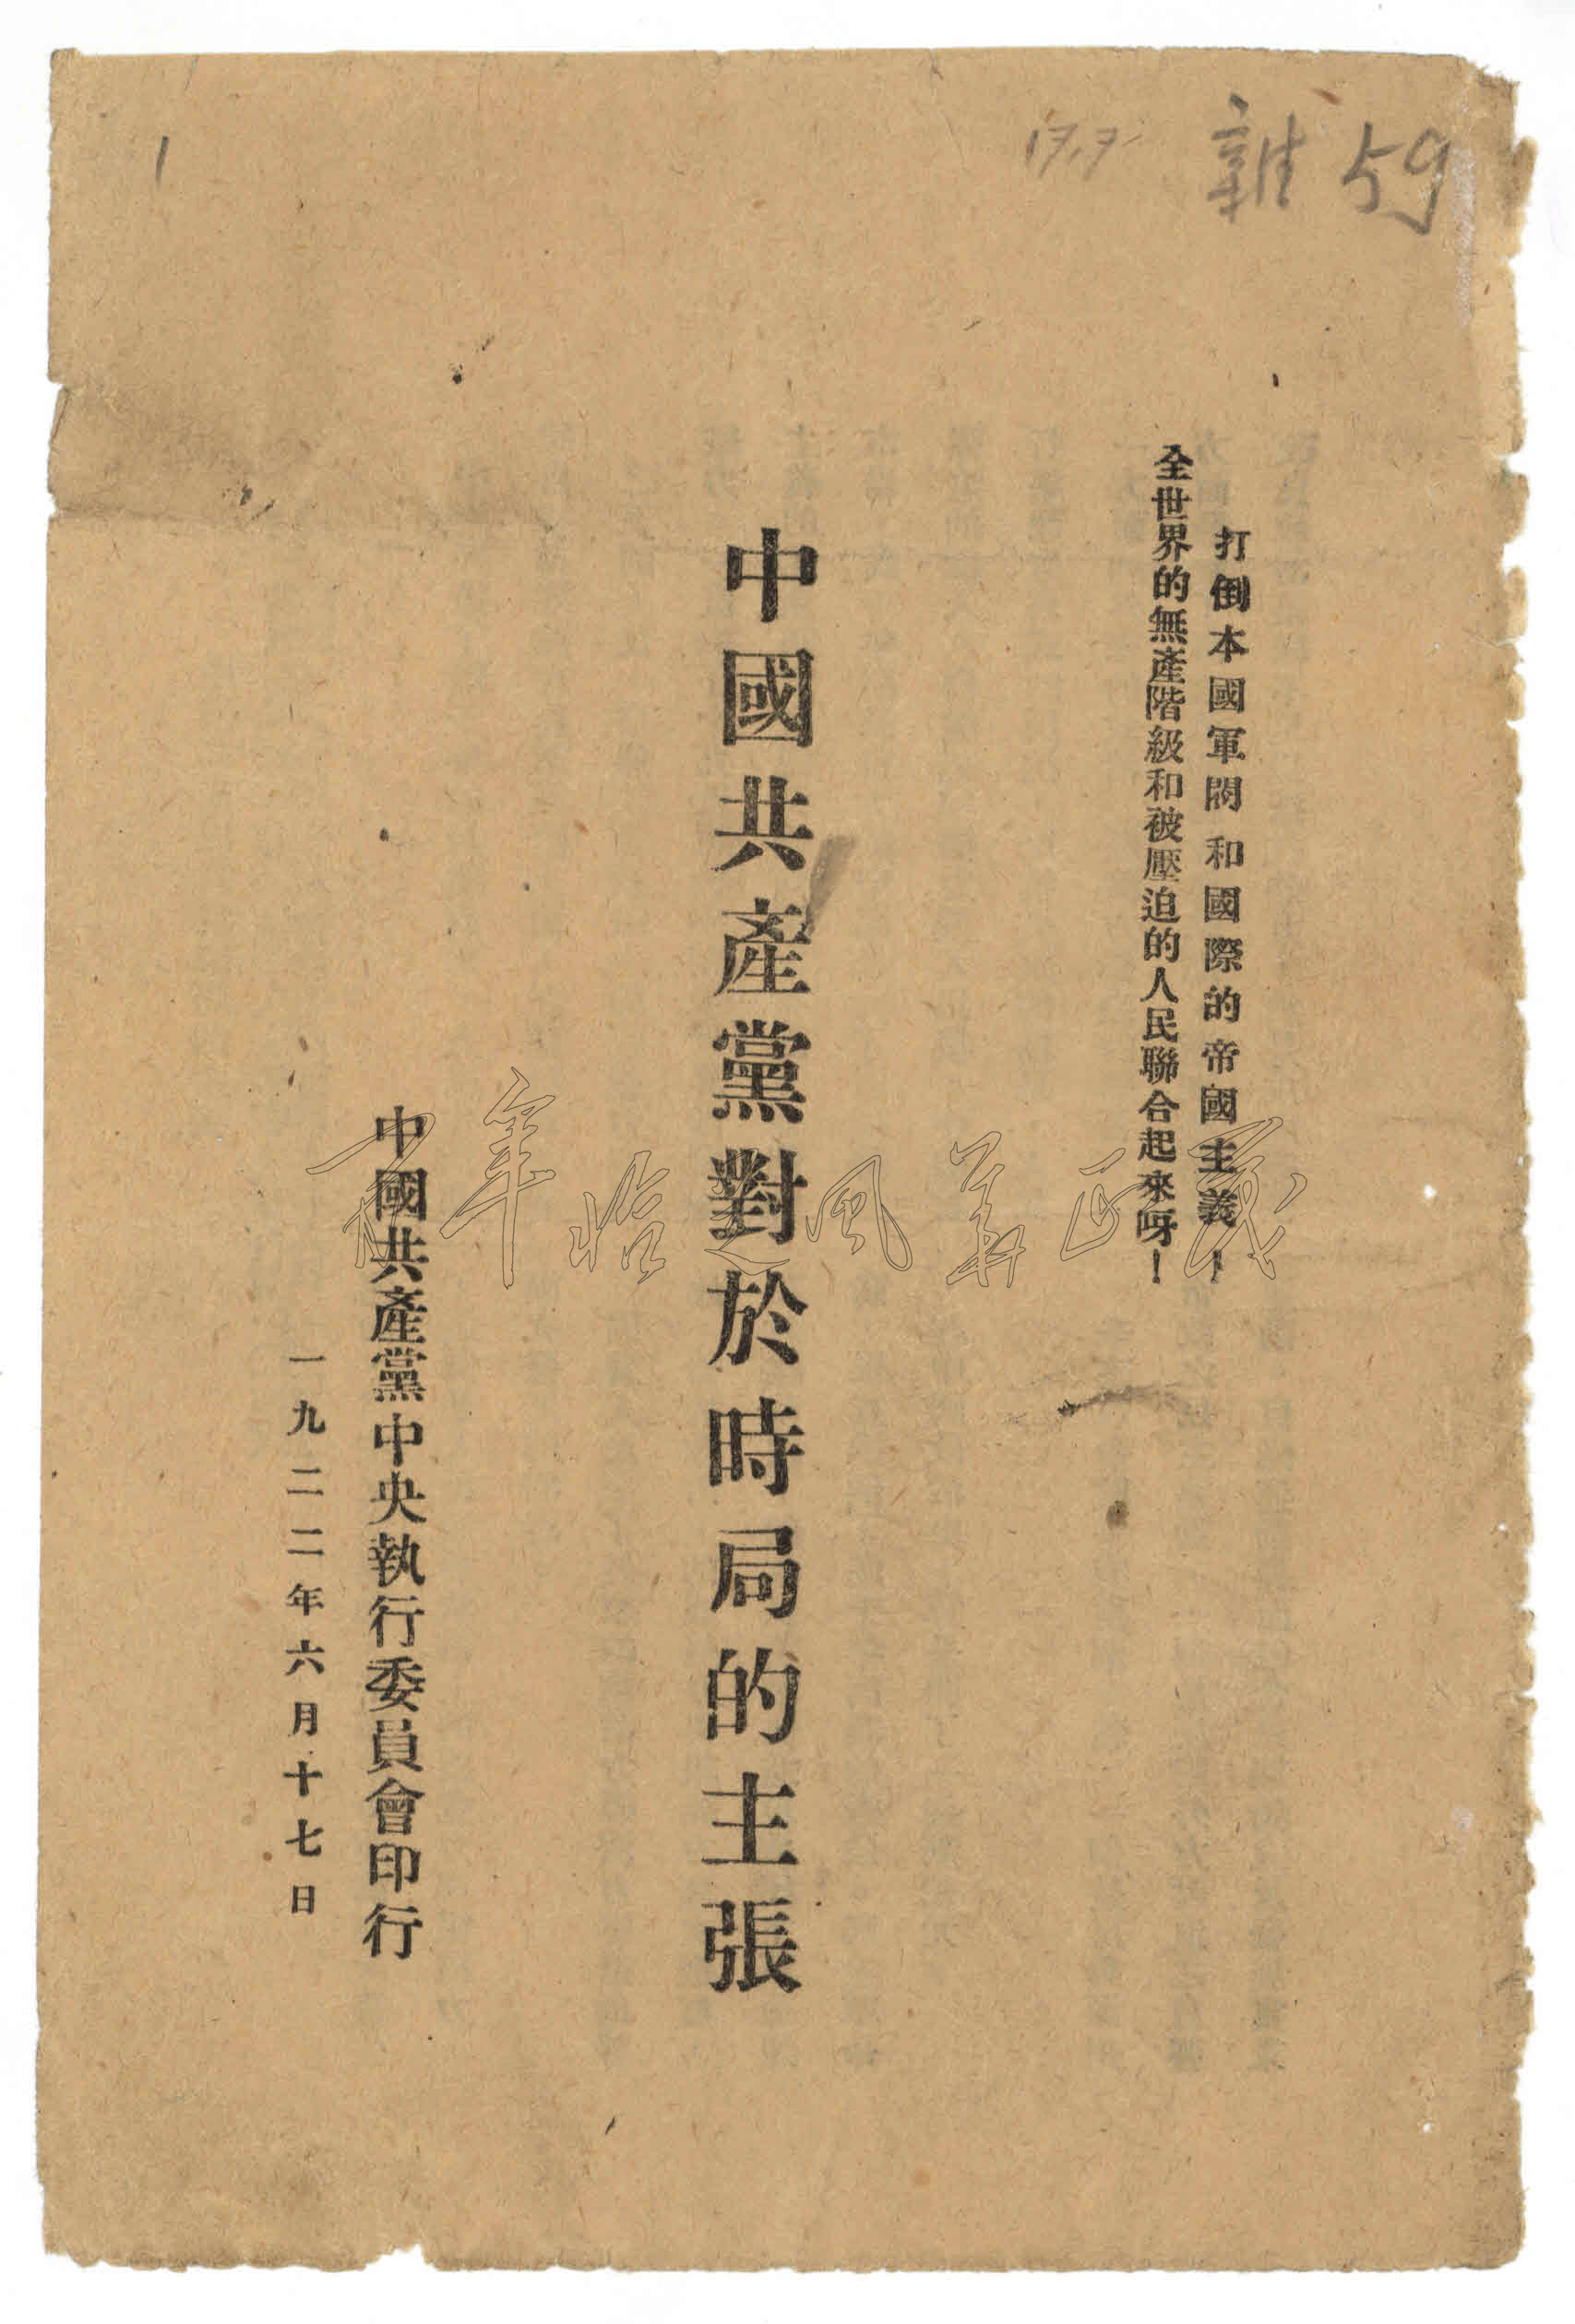 雜 59
17.7
1
打倒本國軍閥和國際的帝國主義！
全世界的無產階級和被壓迫的人民聯合起來呀！
中國共產黨對於時局的主張
中國共產黨中央執行委員會印行
一九二二年六月十七日
百年恰是風華正茂